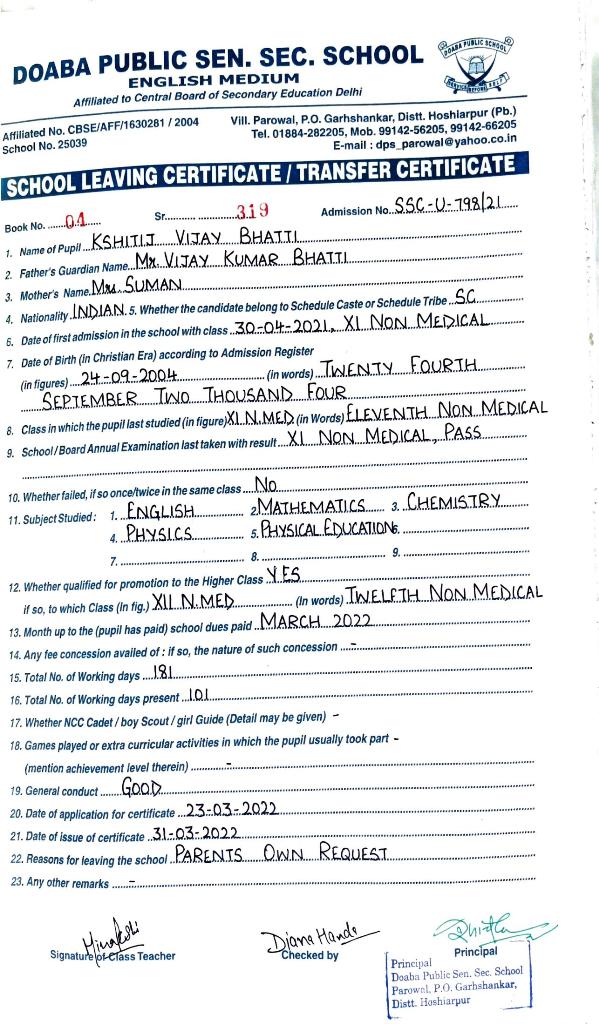 DOABA PUBLIC SEN. SEC. SCHOOL
ENGLISH MEDIUM
Affiliated to Central Board of Secondary Education Delhi
DOABA PUBLIC SCHOOL
Affiliated No. CBSE/AFF/1630281 / 2004
School No. 25039
Vill. Parowal, P.O. Garhshankar, Distt. Hoshiarpur (Pb.)
Tel. 01884-282205, Mob. 99142-56205, 99142-66205
E-mail : dps_parowal@yahoo.co.in
SCHOOL LEAVING CERTIFICATE / TRANSFER CERTIFICATE
Book No. 04 Sr. 319 Admission No. SSC-U-798/21
1. Name of Pupil KSHITIJ VIJAY BHATTI
2. Father's Guardian Name Mr. VIJAY KUMAR BHATTI
3. Mother's Name Mrs SUMAN
4. Nationality INDIAN 5. Whether the candidate belong to Schedule Caste or Schedule Tribe SC
6. Date of first admission in the school with class 30-04-2021, XI NON MEDICAL
7. Date of Birth (in Christian Era) according to Admission Register
(in figures) 24-09-2004 (in words) TWENTY FOURTH
SEPTEMBER TWO THOUSAND FOUR
8. Class in which the pupil last studied (in figure) XI N.MED (in Words) ELEVENTH NON MEDICAL
9. School / Board Annual Examination last taken with result XI NON MEDICAL, PASS
10. Whether failed, if so once/twice in the same class No
11. Subject Studied : 1. ENGLISH 2. MATHEMATICS 3. CHEMISTRY
4. PHYSICS 5. PHYSICAL EDUCATION 6.
7. 8. 9.
12. Whether qualified for promotion to the Higher Class YES
if so, to which Class (In fig.) XII N.MED (In words) TWELFTH NON MEDICAL
13. Month up to the (pupil has paid) school dues paid MARCH 2022
14. Any fee concession availed of : if so, the nature of such concession -
15. Total No. of Working days 181
16. Total No. of Working days present 101
17. Whether NCC Cadet / boy Scout / girl Guide (Detail may be given) -
18. Games played or extra curricular activities in which the pupil usually took part -
(mention achievement level therein) -
19. General conduct GOOD
20. Date of application for certificate 23-03-2022
21. Date of issue of certificate 31-03-2022
22. Reasons for leaving the school PARENTS OWN REQUEST
23. Any other remarks -
Minakshi Diana Handa
Signature of Class Teacher Checked by Principal
Principal
Doaba Public Sen. Sec. School
Parowal, P.O. Garhshankar,
Distt. Hoshiarpur